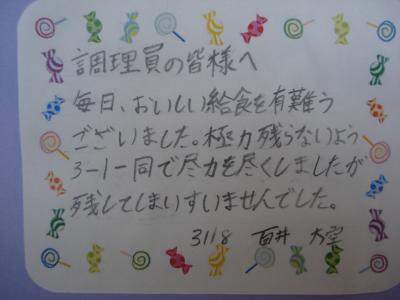 調理員の皆様へ
毎日、おいしい給食を有難う
ございました。極力残らないよう
3-1一同で尽力を尽くしましたが
残してしまいすいませんでした。
3118 百井 大空